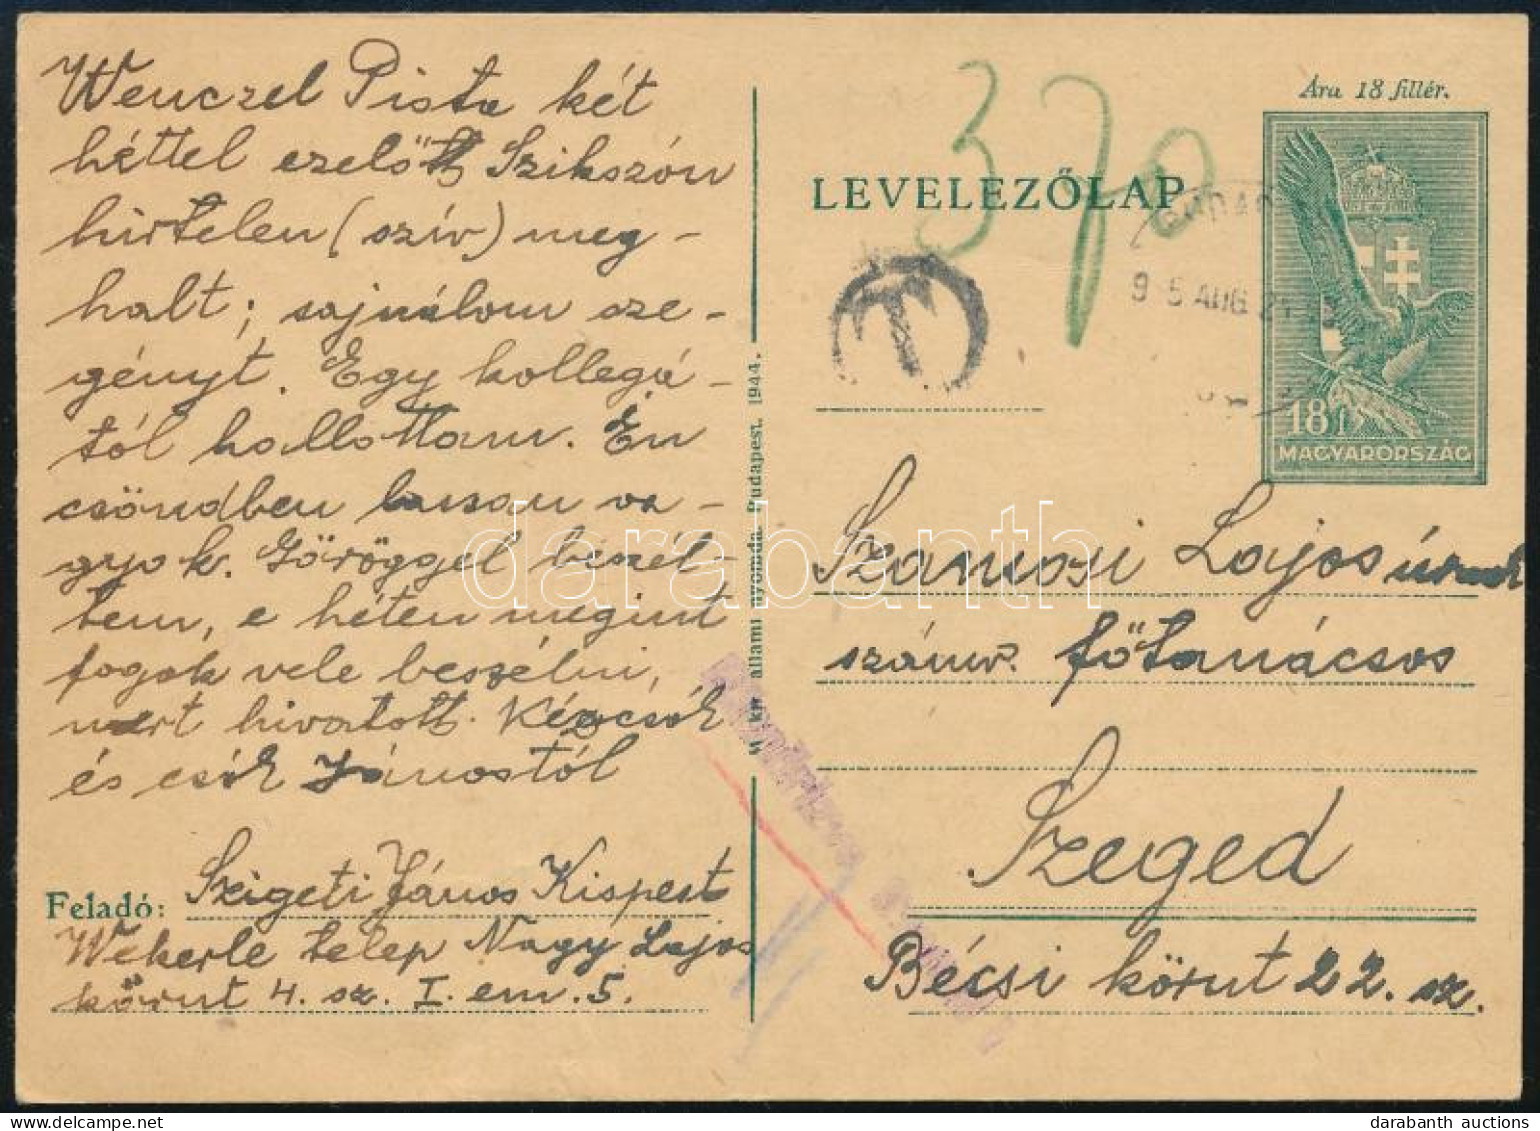 Wenczel Pista két
héttel ezelőtt Szikszón
hirtelen (szív) meg-
halt; sajnálom sze-
gényt. Egy kollegá-
tól hallottam. Én
csöndben lassan va-
gyok. Göröggel beszél-
tem, e héten megint
fogok vele beszélni,
mert hivatott. Kézcsók
és csók Jánostól
Feladó: Szigeti János Kispest
Wekerle telep Nagy Lajos
körut 4. sz. I. em. 5.
M. kir. állami nyomda. Budapest. 1944.
Ára 18 fillér.
370
LEVELEZŐLAP
T
9 5 AUG 21
18 f
MAGYARORSZÁG
Szamosi Lajos úrnak
számv. főtanácsos
Szeged
Bécsi körut 22. sz.
darabanth
darabanth auctions